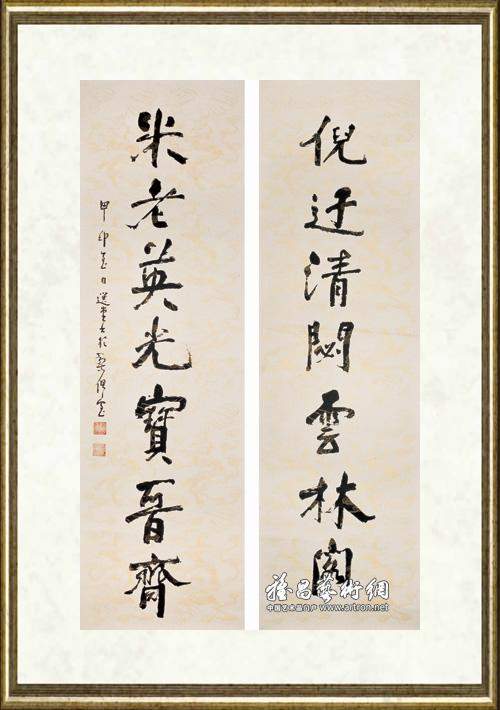 倪迂清閟雲林閣
米老英光寶晉齋
甲申夏日選堂書於梨俱室
雅昌藝術網
中国艺术品门户 www.artron.net